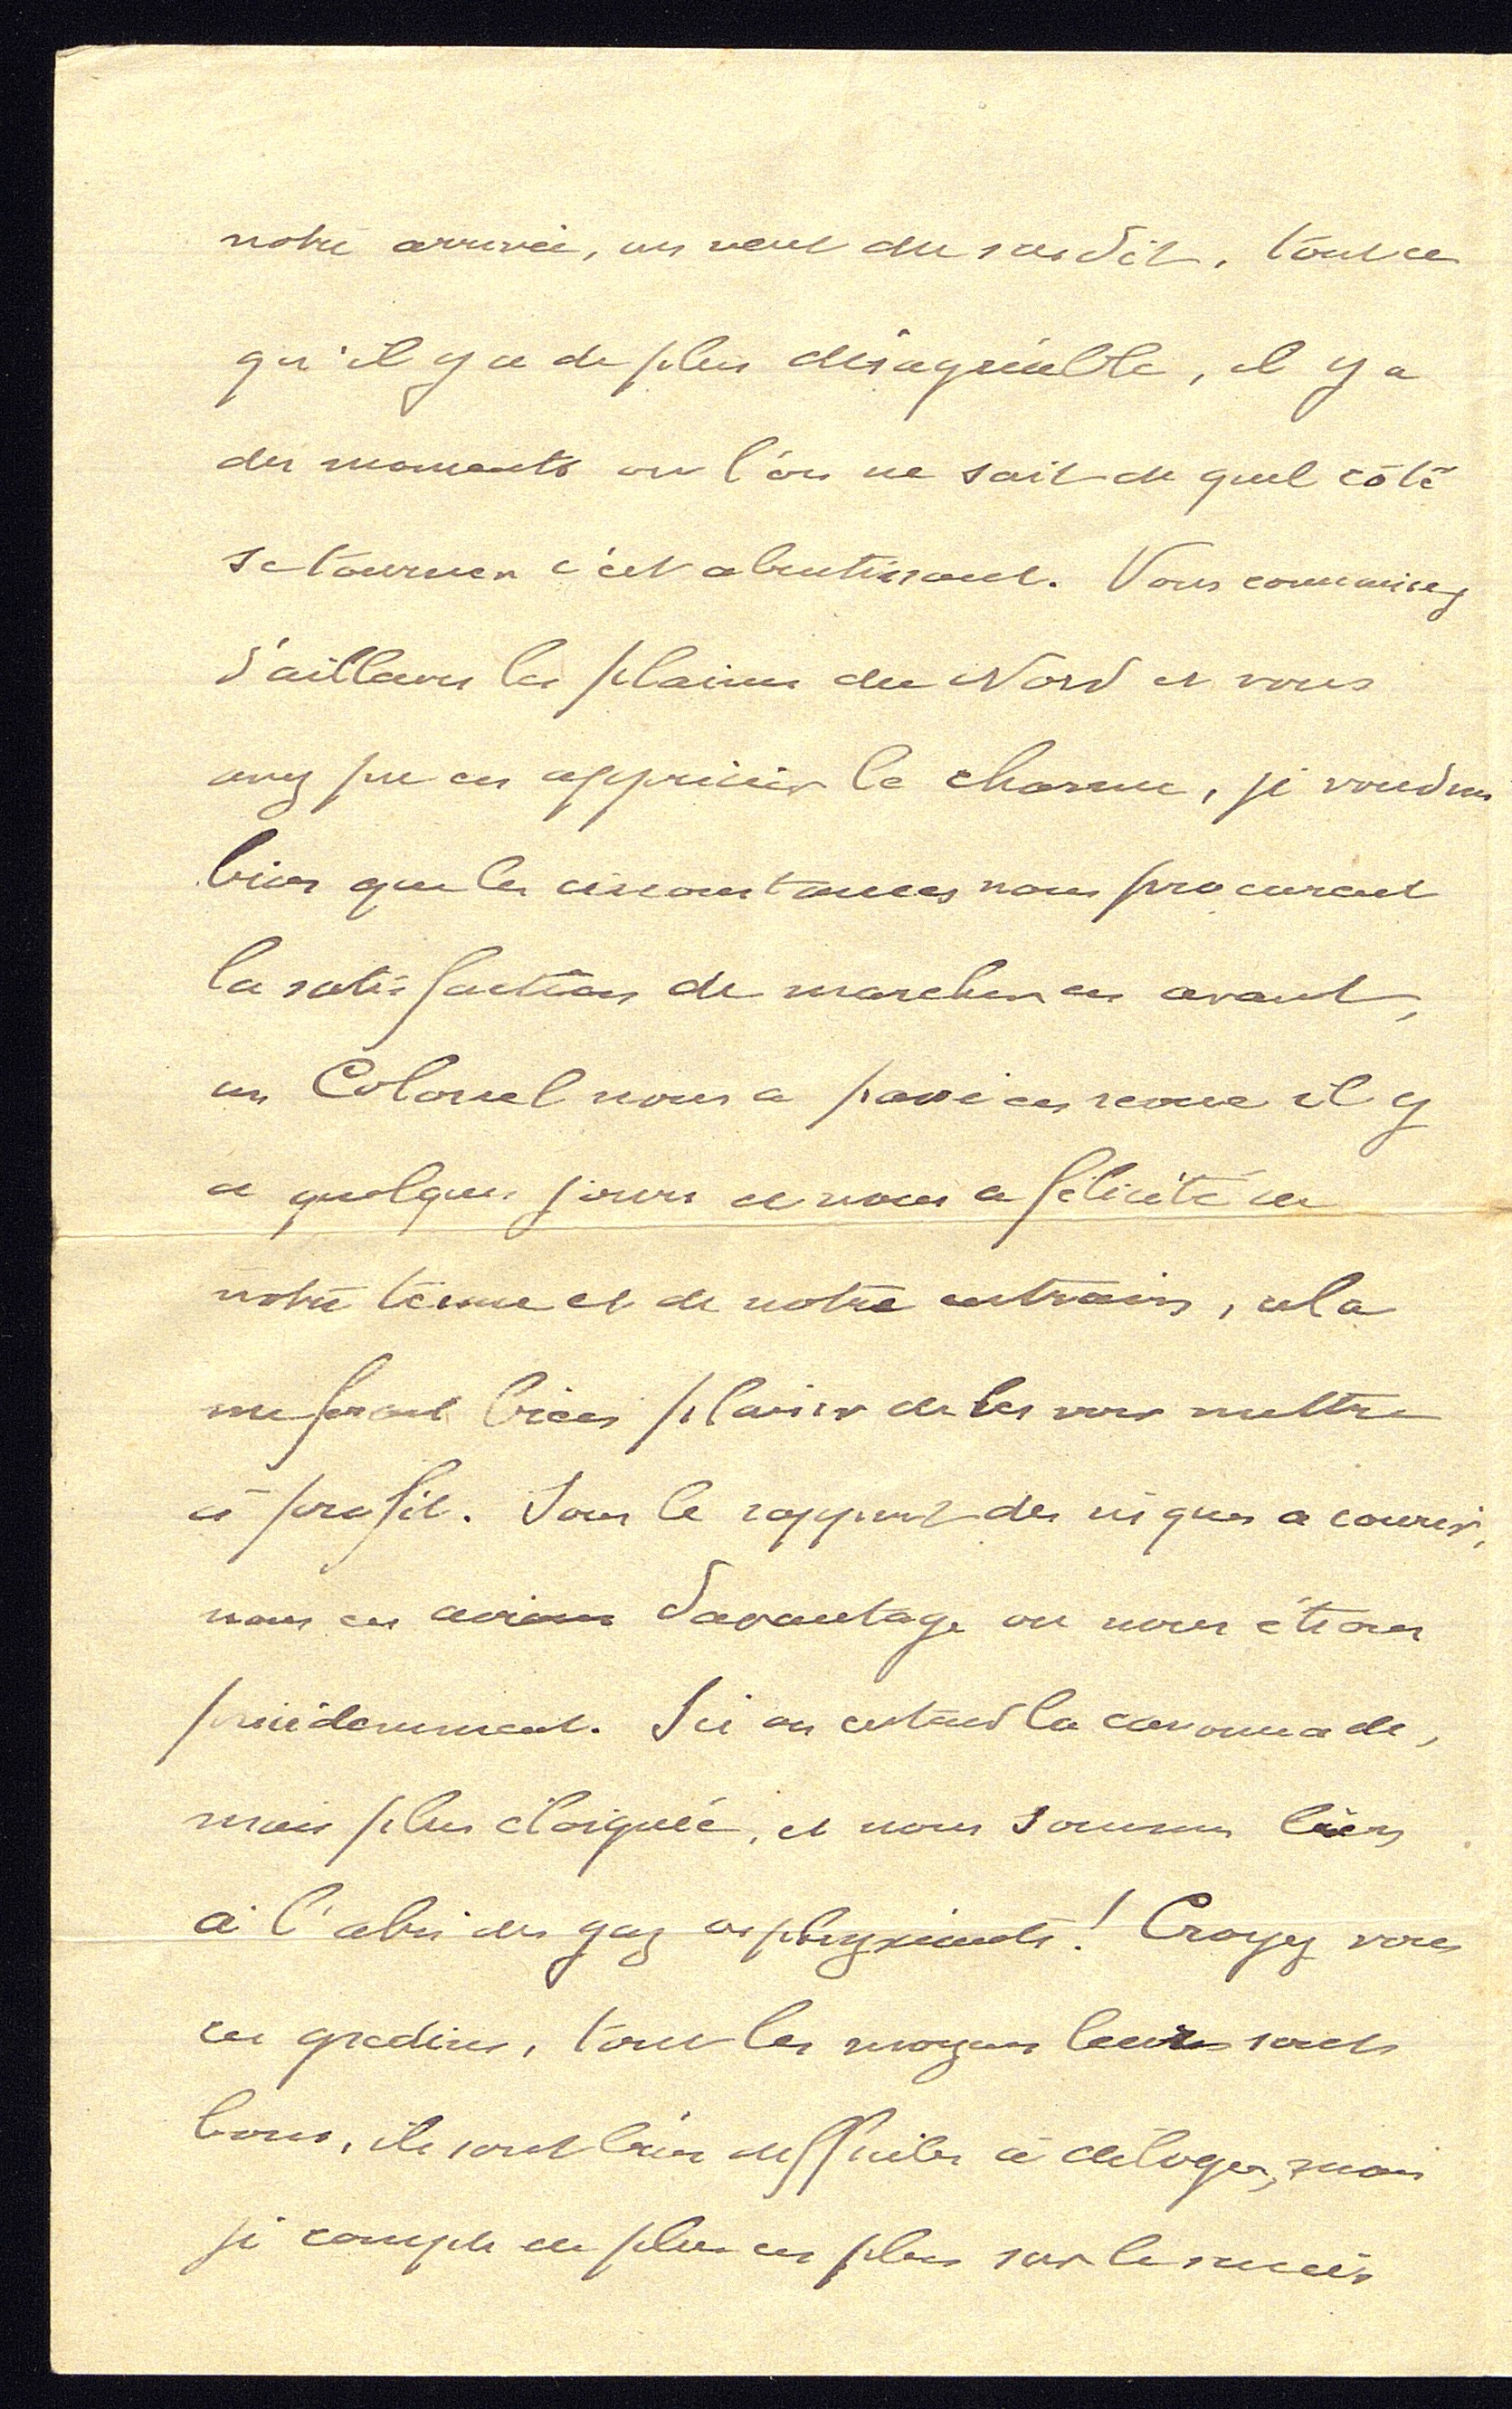 notre arrivée, un vent du susdit, tout ce
qu'il y a de plus désagréable, il y a
des moments ou l'on ne sait de quel côté
se tourner c'est abrutissant. Vous connaissez
d'ailleurs les plaines du Nord et vous
avez pu en apprécier le charme, je voudrais
bien que les circonstances nous procurent
la satisfaction de marcher en avant,
un Colonel nous a passé en revue il y
a quelques jours et nous a félicité de
notre tenue et de notre entrain, cela
me ferait bien plaisir de les voir mettre
à profit. Sous le rapport des risques a courir,
nous en avions davantage ou nous étions
précédemment. Ici on entend la canonnade,
mais plus éloignée, et nous sommes bien
à l'abri des gaz asphyxiants! Croyez vous
ces gredins, tout les moyens leurs sont
bons, ils sont bien difficiles à déloger, mais
je compte de plus en plus sur le succès